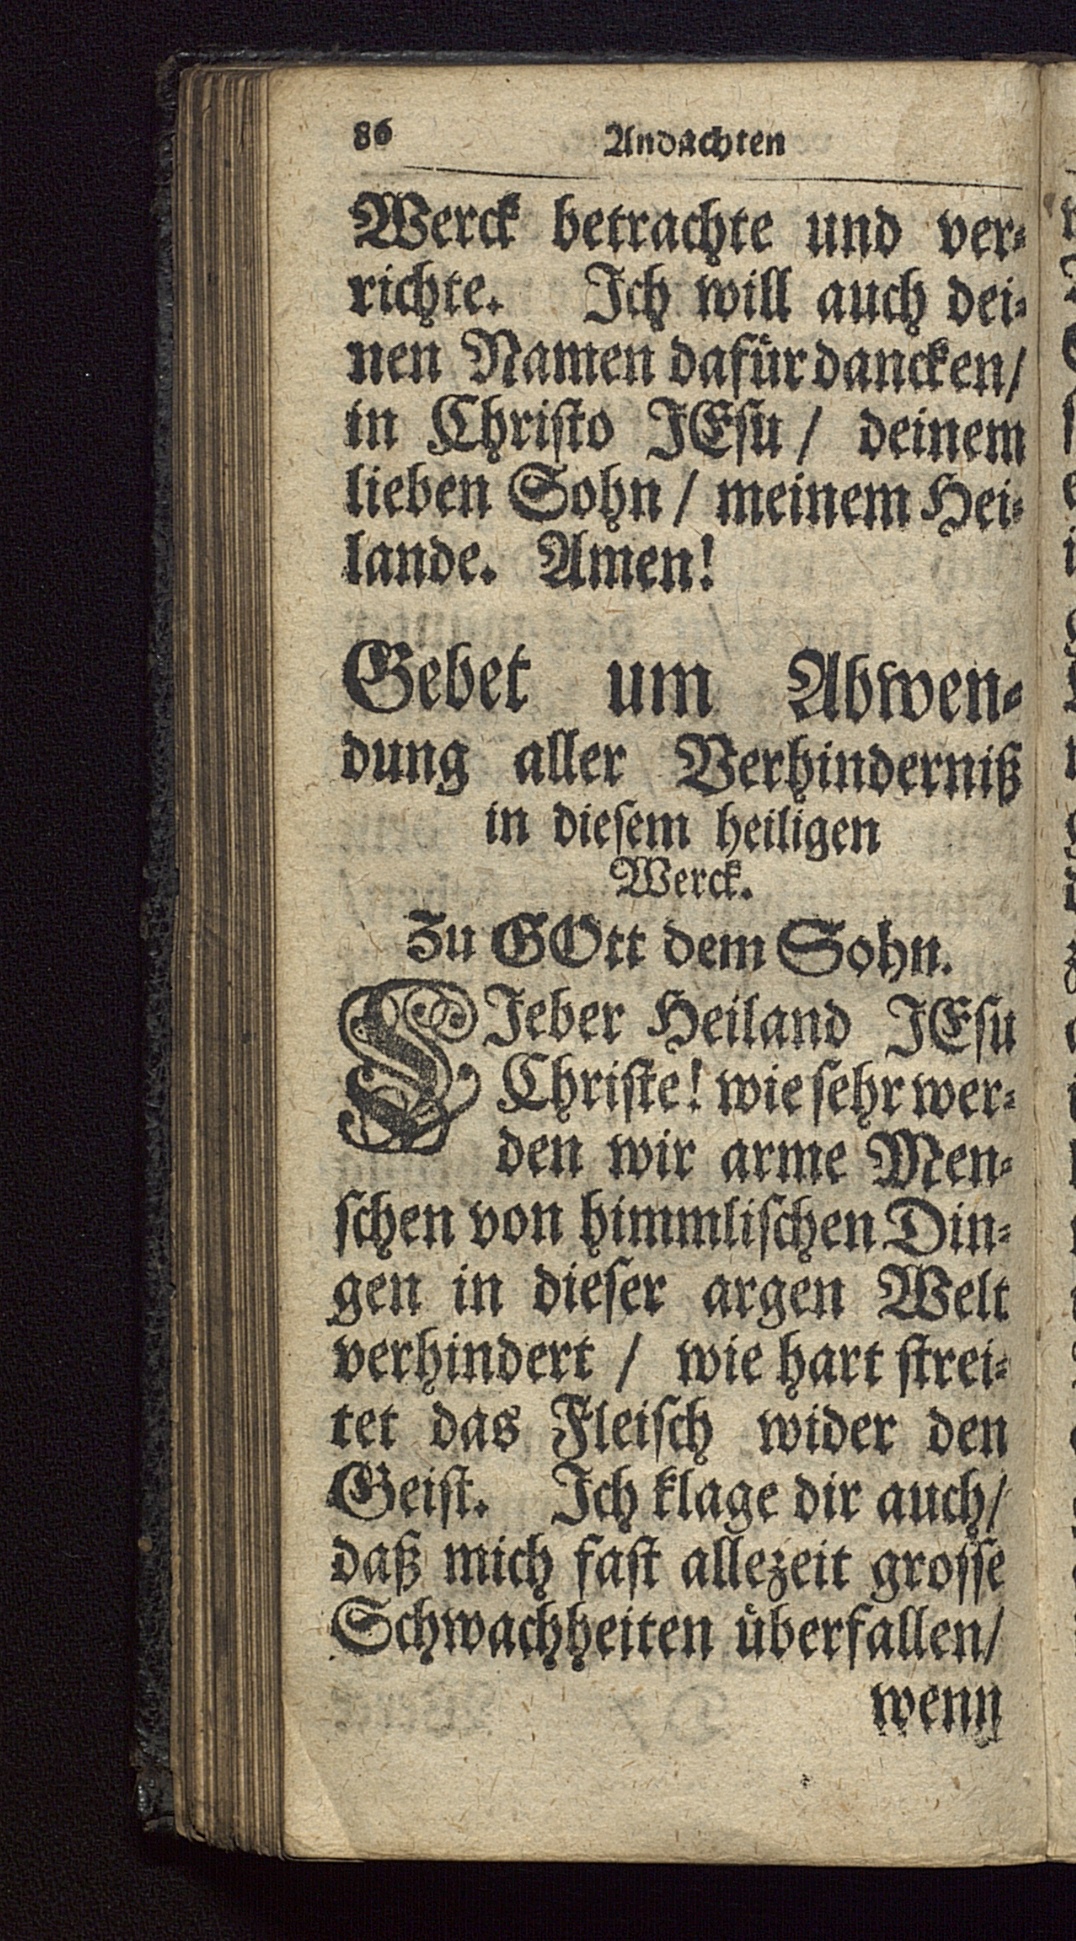 86 Andachten
Werck betrachte und ver⸗
richte. Ich will auch dei⸗
nen Namen dafür dancken/
in Christo JEsu / deinem
lieben Sohn / meinem Hei⸗
lande. Amen!
Gebet um Abwen⸗
dung aller Verhinderniß
in diesem heiligen
Werck.
Zu GOtt dem Sohn.
LIeber Heiland JEsu
Christe! wie sehr wer⸗
den wir arme Men⸗
schen von himmlischen Din⸗
gen in dieser argen Welt
verhindert / wie hart strei⸗
tet das Fleisch wider den
Geist. Ich klage dir auch/
daß mich fast allezeit grosse
Schwachheiten überfallen/
wenn